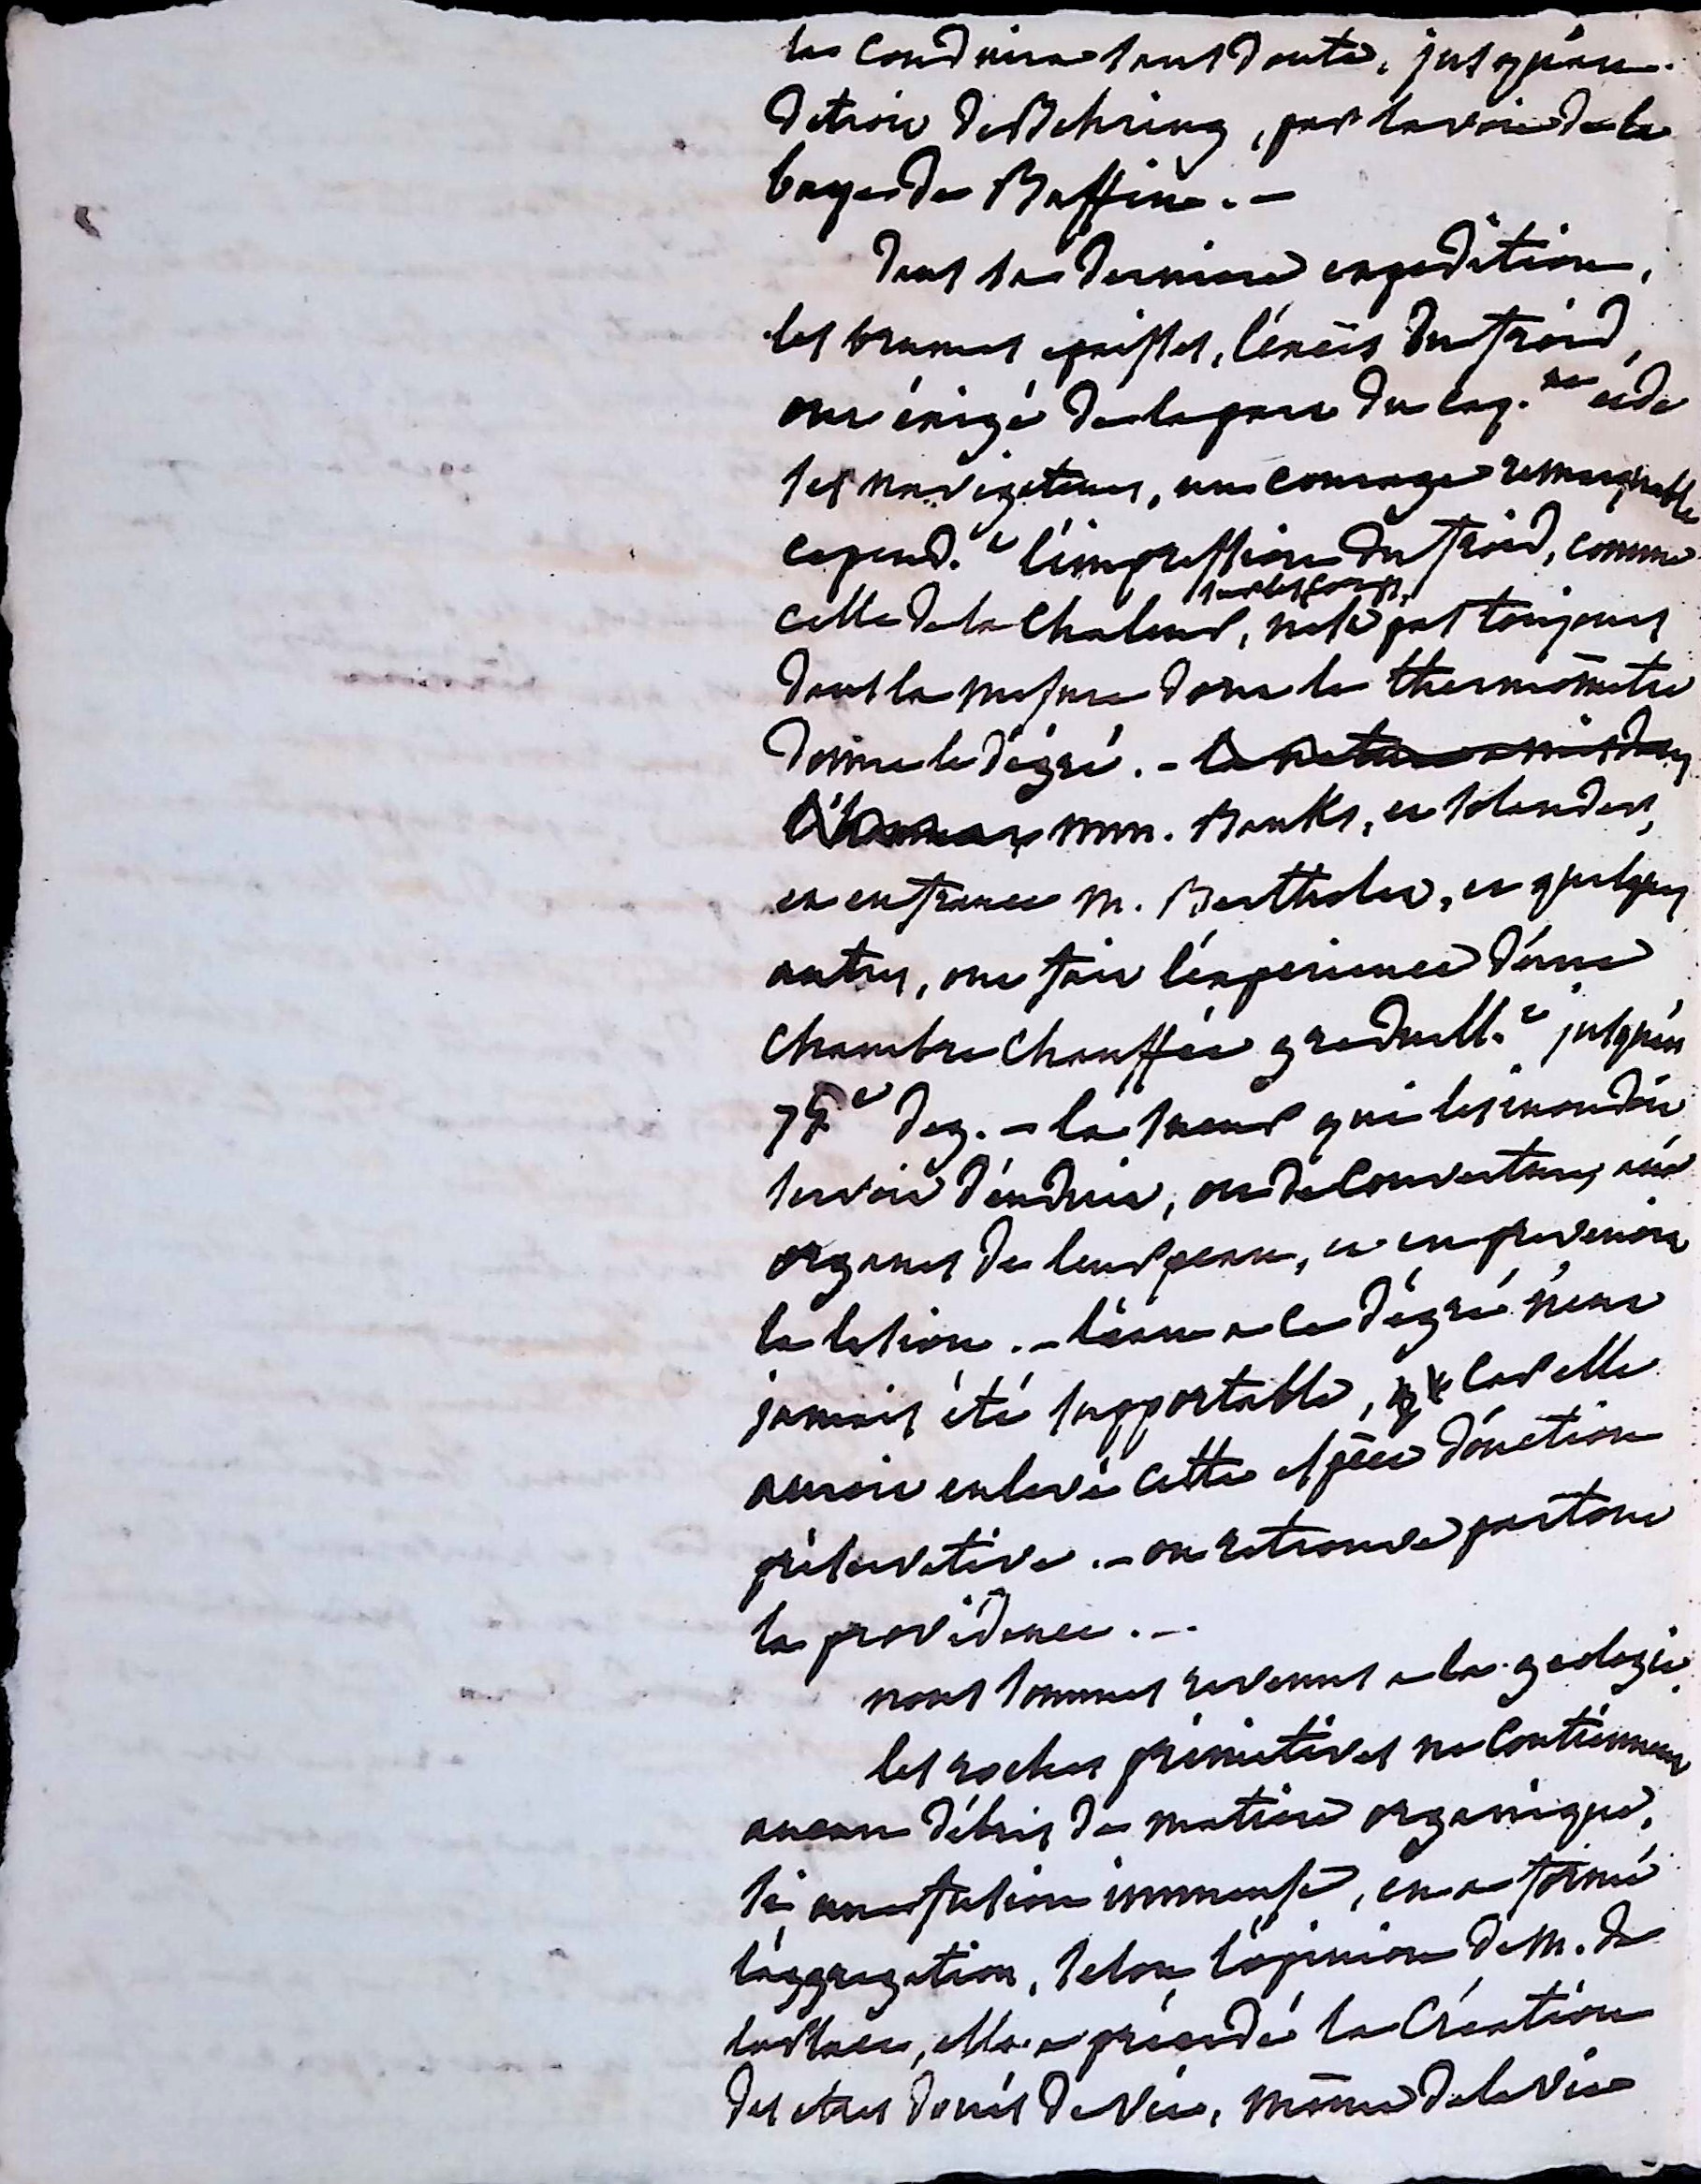 les conduira sans doute, jusqu'au
detroit de Behring, par la voie de la
baye de Baffin. -
dans sa derniere expedition,
les brumes epaisses, l'éxcès du froid,
ont éxigé de la part du cap.ne et de
ses navigateurs, un courage remarquable
cepend.t l'impression du froid, comme
sur les corps,
celle de la chaleur, n'est pas toujours
dans la mesure dont le thermomètre
donne le dégré. - la nature a mis dans
l'homme mm. Banks, et Solander,
et en france M. Berthollet, et quelques
autres, ont fait l'éxperience d'une
chambre chauffée graduell.t jusqu'au
75e deg. - la sueur qui les inondoit
servoit d'enduit, ou de couverture, aux
organes de leur peau, et en prevenoit
la lesion. - l'eau a ce dégré n'eut
jamais été supportable, car elle
auroit enlevé cette espèce d'onction
préservative. - on retrouve partout
la providence. -
nous sommes revenus a la geologie.
les roches primitives ne contiennent
aucun débris de matiere organique.
si une fusion immense, en a formé
l'aggregation, selon l'opinion de M. de
la place, elle a précédé la création
des etres doués de vie, même de la vie